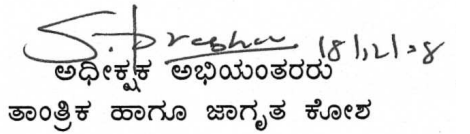 S. Prabha 18/12/08
ಅಧೀಕ್ಷಕ ಅಭಿಯಂತರರು
ತಾಂತ್ರಿಕ ಹಾಗೂ ಜಾಗೃತ ಕೋಶ